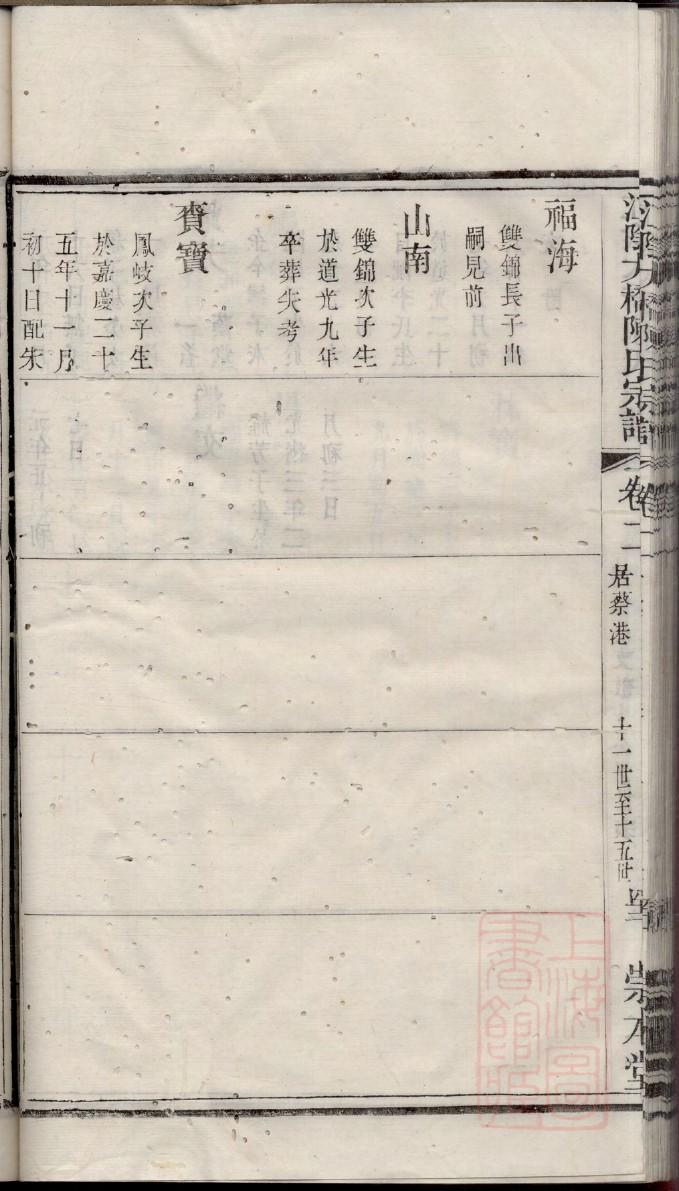 福海
雙錦長子出
嗣見前
山南
雙錦次子生
於道光九年
卒葬失考
賚寶
鳳岐次子生
於嘉慶二十
五年十一月
初十日配朱
陳氏宗譜
卷二
居蔡港
十一世至十五世
崇本堂
上海圖書館